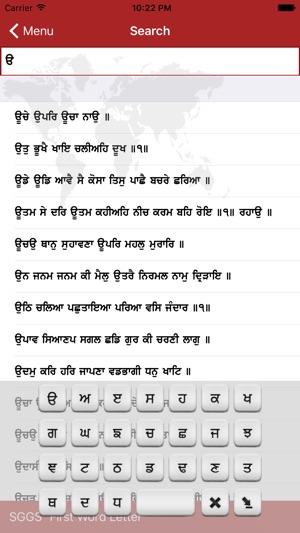 Carrier 10:22 PM
Menu Search
ੳ
ਊਚੇ ਉਪਰਿ ਊਚਾ ਨਾਉ ॥
ਊਤੁ ਭੂਖੈ ਖਾਇ ਚਲੀਅਹਿ ਦੂਖ ॥੧॥
ਊਡੇ ਊਡਿ ਆਵੈ ਸੈ ਕੋਸਾ ਤਿਸੁ ਪਾਛੈ ਬਚਰੇ ਛਰਿਆ ॥
ਊਤਮ ਸੇ ਦਰਿ ਊਤਮ ਕਹੀਅਹਿ ਨੀਚ ਕਰਮ ਬਹਿ ਰੋਇ ॥੧॥ ਰਹਾਉ ॥
ਊਚਉ ਥਾਨੁ ਸੁਹਾਵਣਾ ਊਪਰਿ ਮਹਲੁ ਮੁਰਾਰਿ ॥
ਊਨ ਜਨਮ ਜਨਮ ਕੀ ਮੈਲੁ ਉਤਰੈ ਨਿਰਮਲ ਨਾਮੁ ਦ੍ਰਿੜਾਇ ॥
ਊਠਿ ਚਲਿਆ ਪਛੁਤਾਇਆ ਪਰਿਆ ਵਸਿ ਜੰਦਾਰ ॥੧॥
ਉਪਾਵ ਸਿਆਣਪ ਸਗਲ ਛਡਿ ਗੁਰ ਕੀ ਚਰਣੀ ਲਾਗੁ ॥
ਉਦਮੁ ਕਰਿ ਹਰਿ ਜਾਪਣਾ ਵਡਭਾਗੀ ਧਨੁ ਖਾਟਿ ॥
ਊਚਾ
ੳ ਅ ੲ ਸ ਹ ਕ ਖ
ਊਚਉ
ਗ ਘ ਙ ਚ ਛ ਜ ਝ
ਉਦਾਸੀ
ਞ ਟ ਠ ਡ ਢ ਣ ਤ
ਥ ਦ ਧ
SGGS First Word Letter